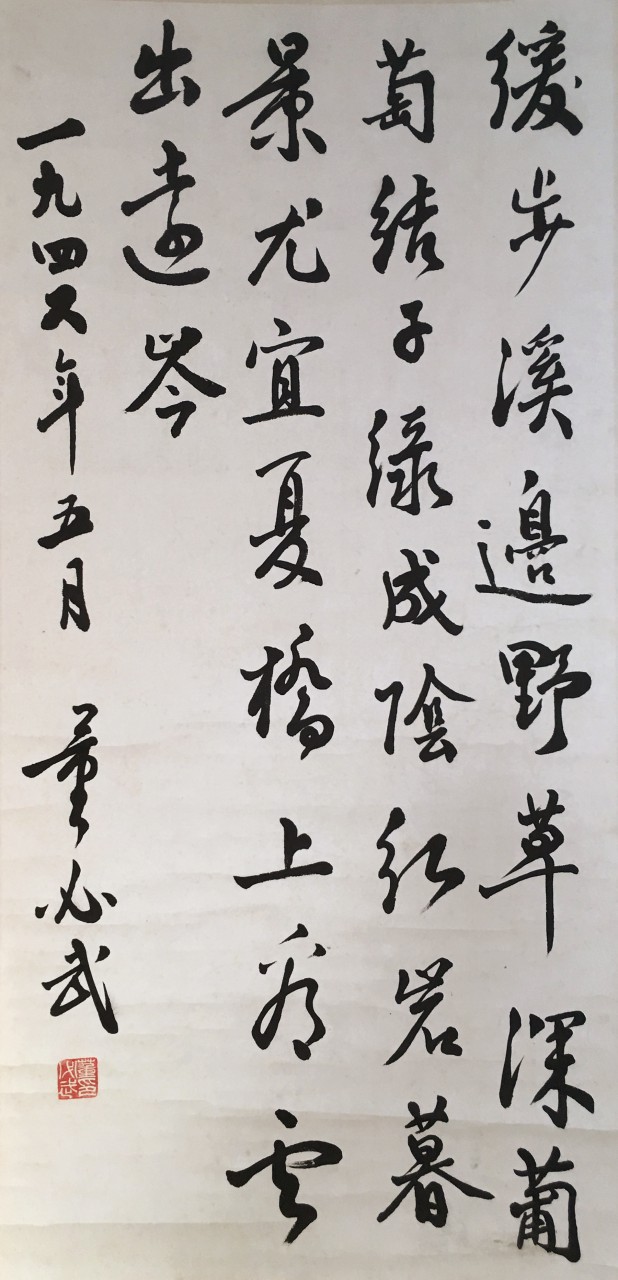 緩步溪邊野草深葡
萄結子緑成陰紅岩暮
景尤宜夏橋上看云
出遠岑
一九四六年五月 董必武
董印必武